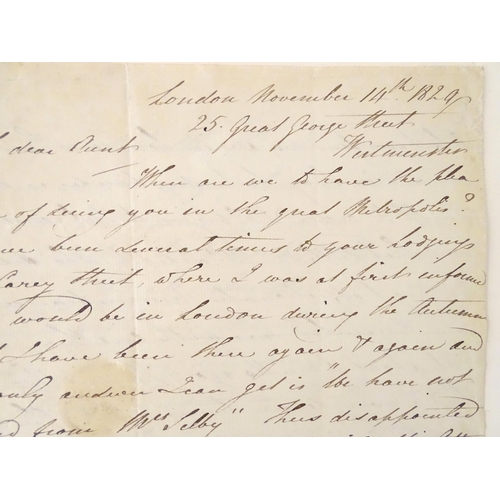 London November 14th 1829
25. Great George Street
Westminster
dear Aunt
When are we to have the plea
of seeing you in the great Metropolis?
been several times to your lodgings
Carey Street, where I was at first inform
would be in London during the Autumn
I have been there again & again and
only answer I can get is "We have not
from Mrs Selby" Thus disappointed